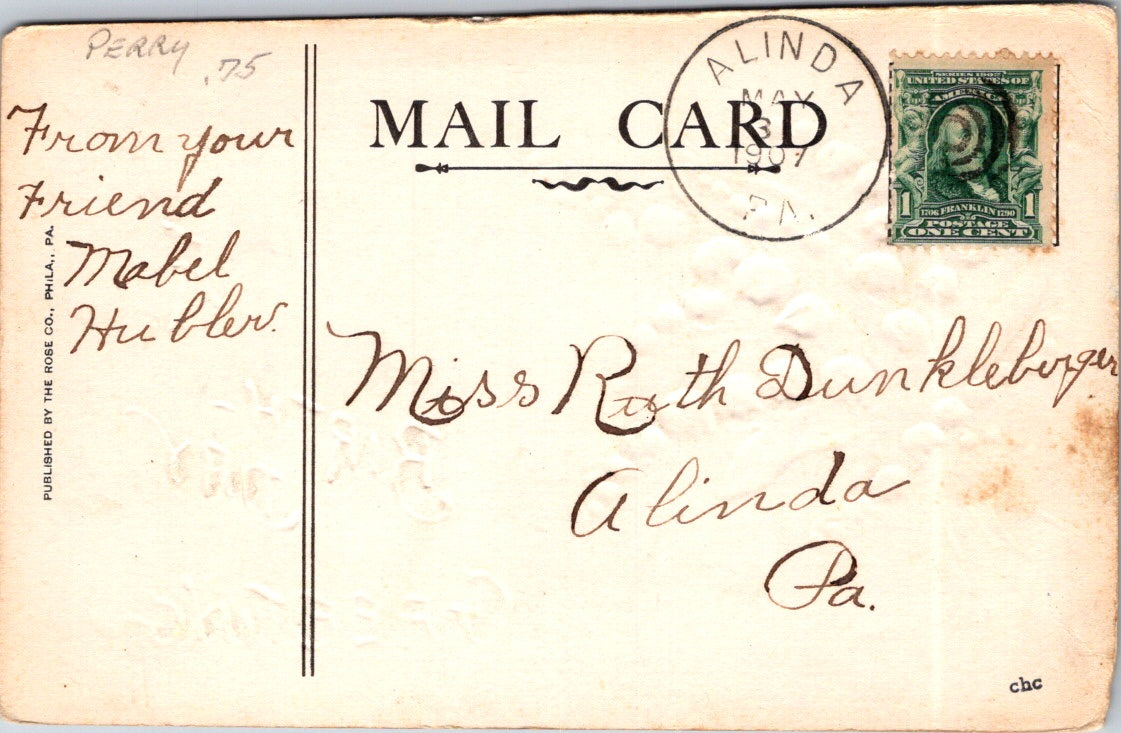 PERRY .75
From your
Friend
Mabel
Hubler.
PUBLISHED BY THE ROSE CO., PHILA., PA.
MAIL CARD
ALINDA
MAY
3
1907
PA.
SERIES 1902
UNITED STATES OF
AMERICA
1 1706 FRANKLIN 1790 1
POSTAGE
ONE CENT
Miss Ruth Dunkleberger
Alinda
Pa.
chc